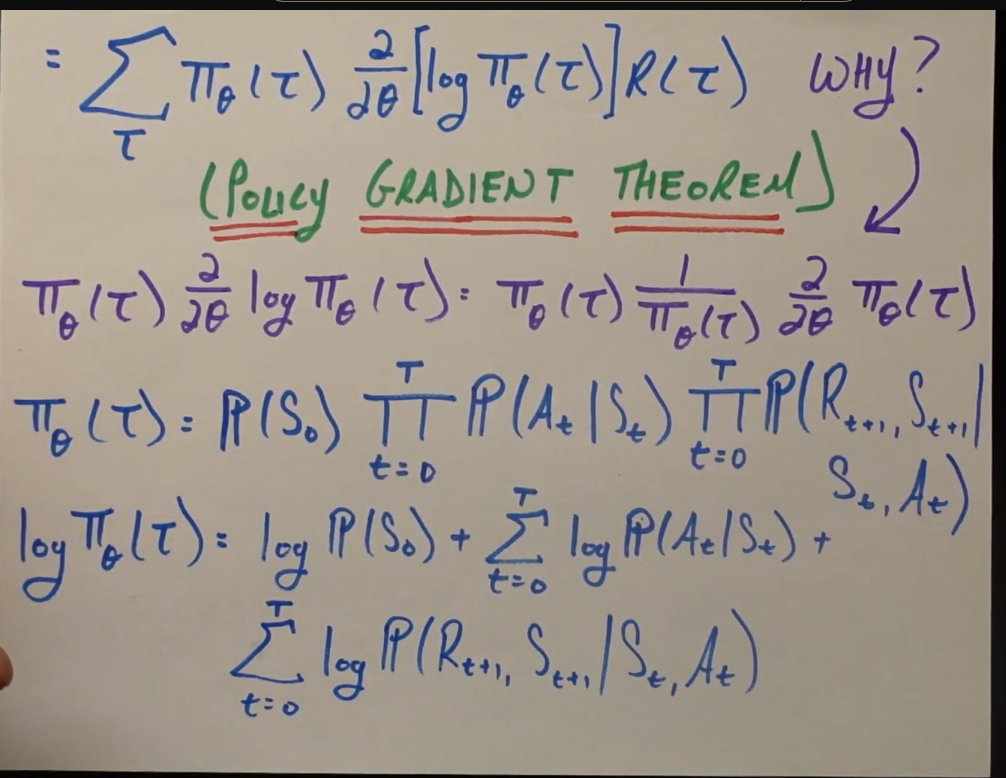 = ∑_τ π_θ(τ) ∂/∂θ [log π_θ(τ)] R(τ) WHY?
(POLICY GRADIENT THEOREM)
π_θ(τ) ∂/∂θ log π_θ(τ) = π_θ(τ) 1/π_θ(τ) ∂/∂θ π_θ(τ)
π_θ(τ) = ℙ(S_0) ∏_{t=0}^{T} ℙ(A_t|S_t) ∏_{t=0}^{T} ℙ(R_{t+1}, S_{t+1}|
S_t, A_t)
log π_θ(τ) = log ℙ(S_0) + ∑_{t=0}^{T} log ℙ(A_t|S_t) +
∑_{t=0}^{T} log ℙ(R_{t+1}, S_{t+1}|S_t, A_t)